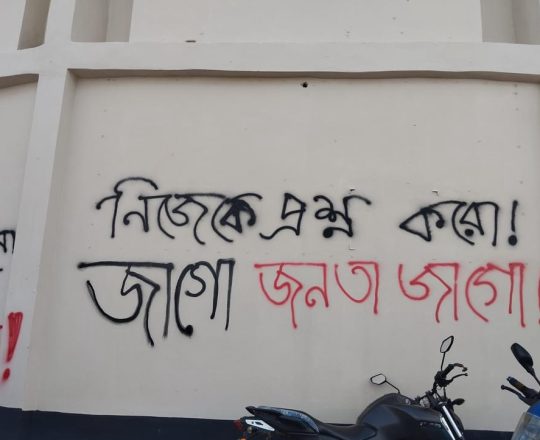 নিজেকে প্রশ্ন করো!
জাগো জনতা জাগো!